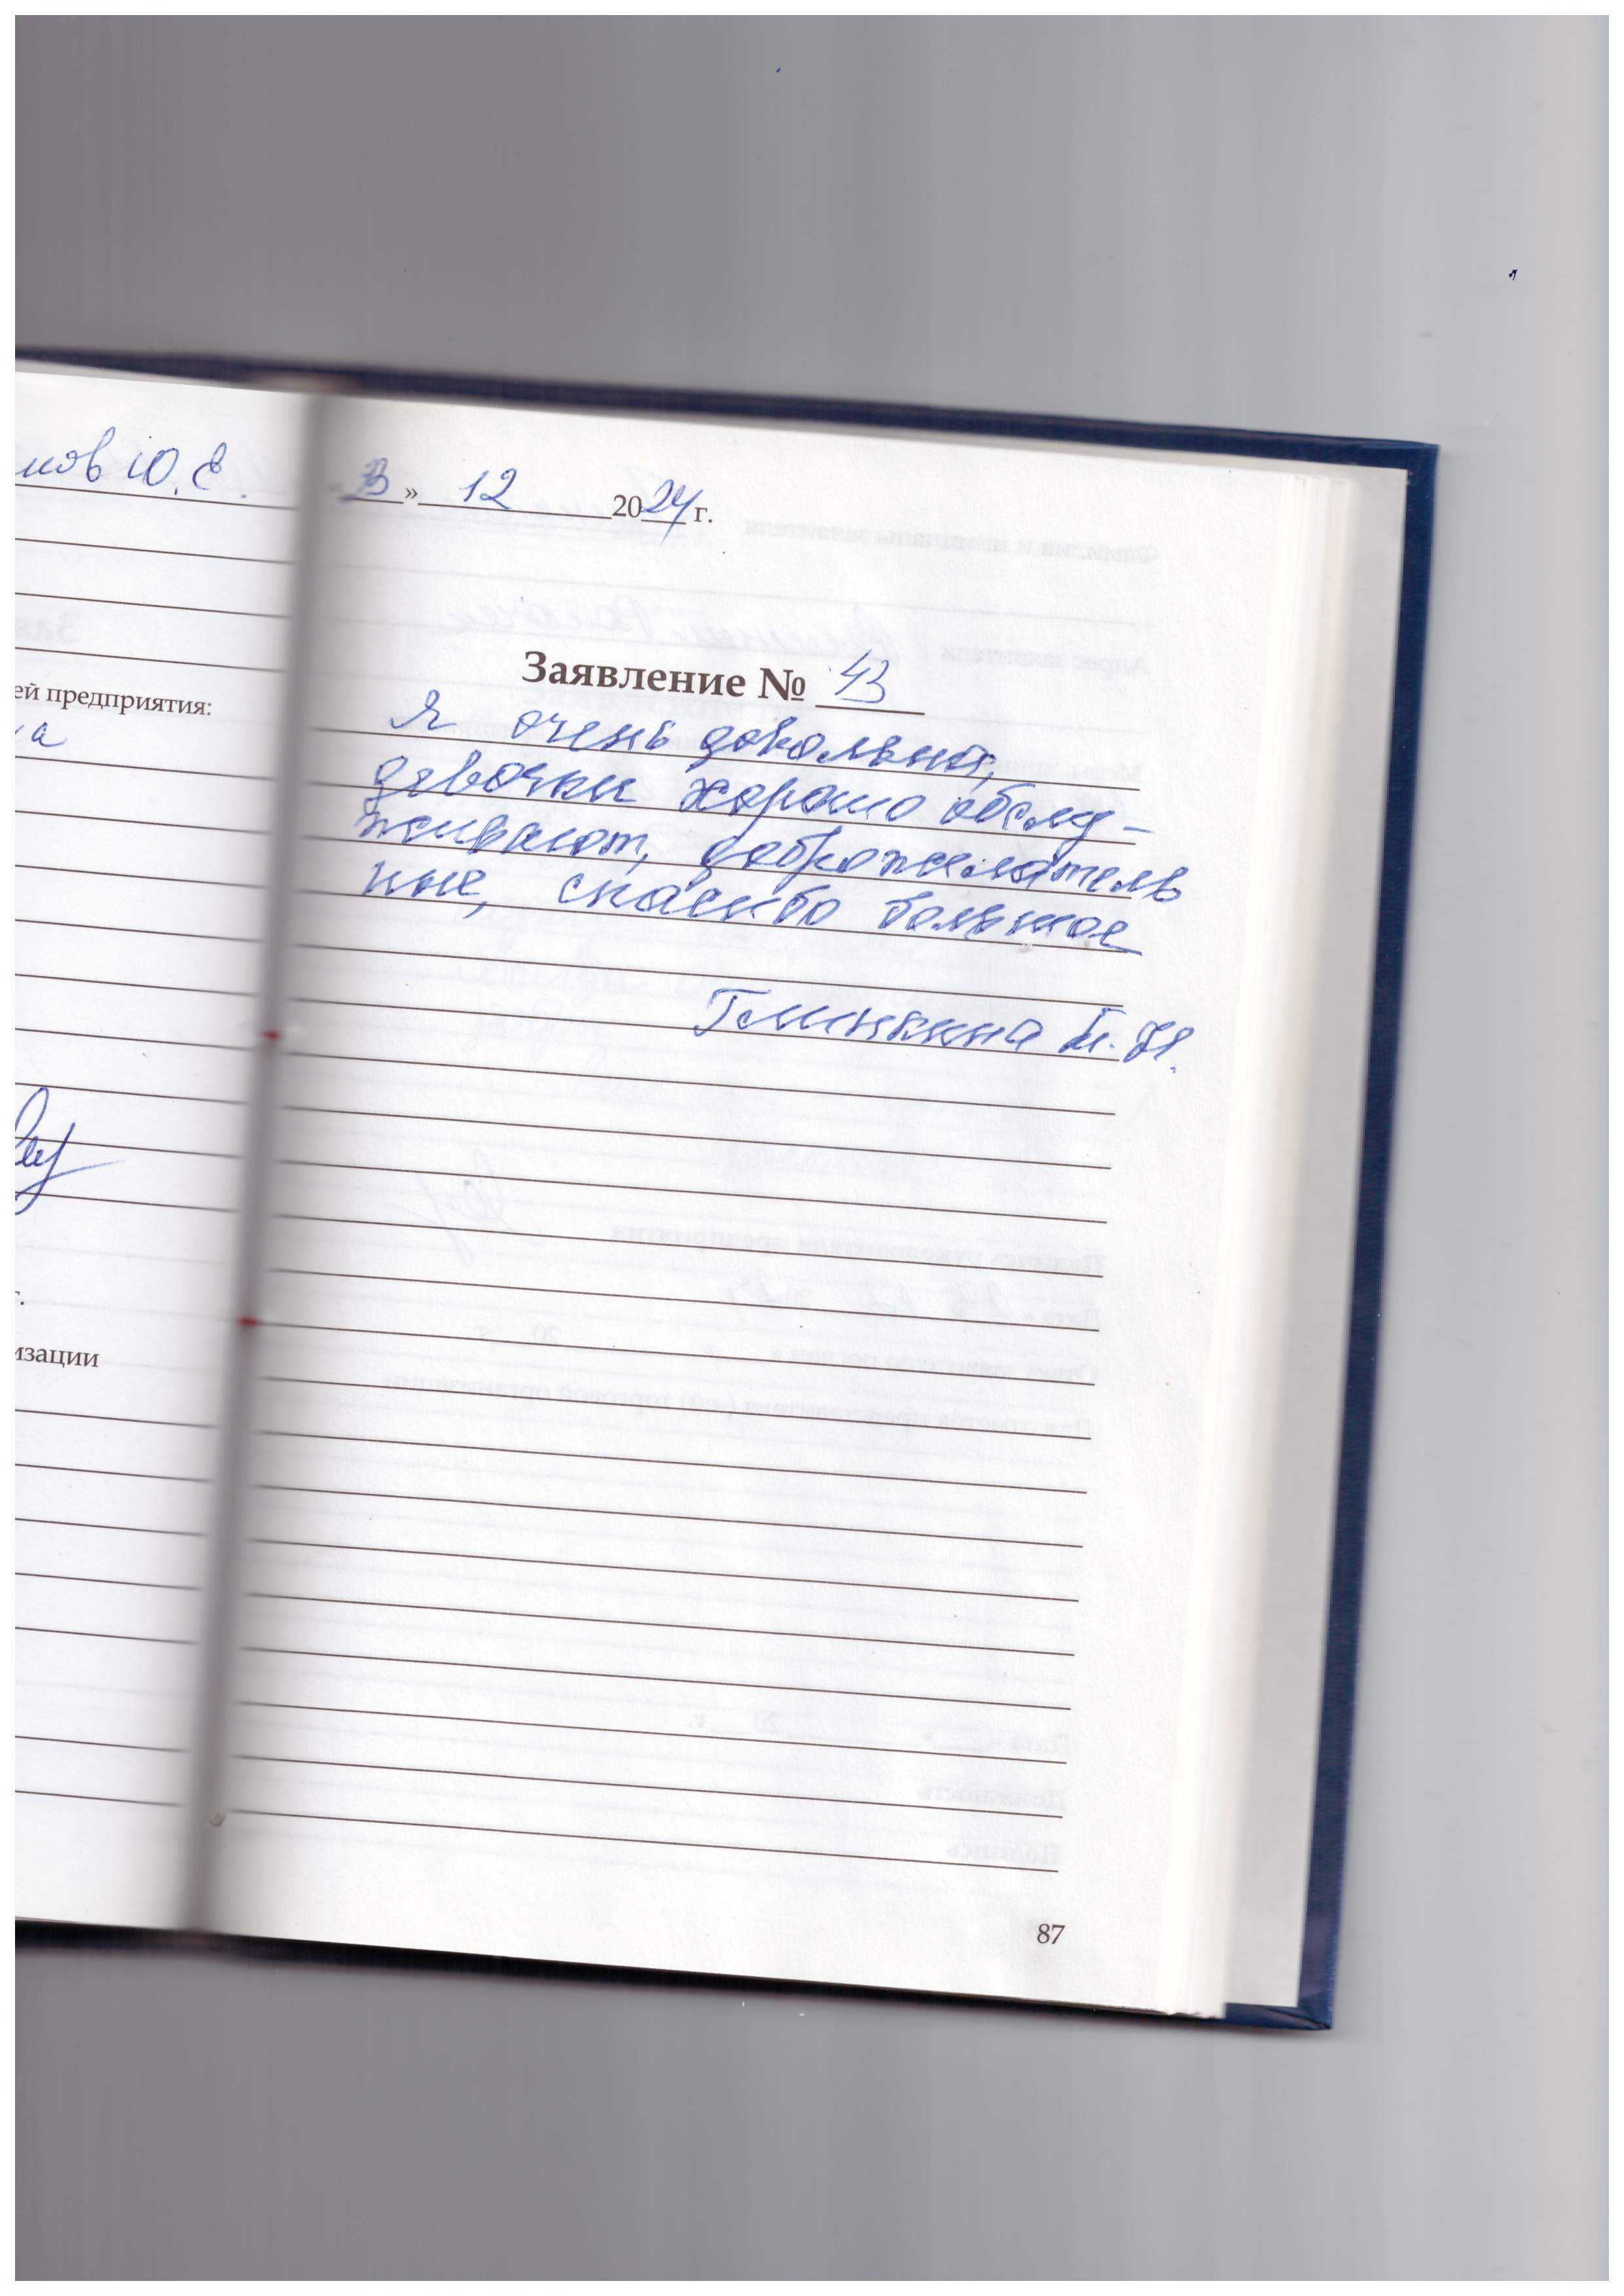 нов Ю.Е.
ей предприятия:
а
г.
изации
» 12 2024 г.
Заявление № 43
Я очень довольна,
девочки хорошо обслу-
живают, доброжелатель
ные, спасибо большое
87